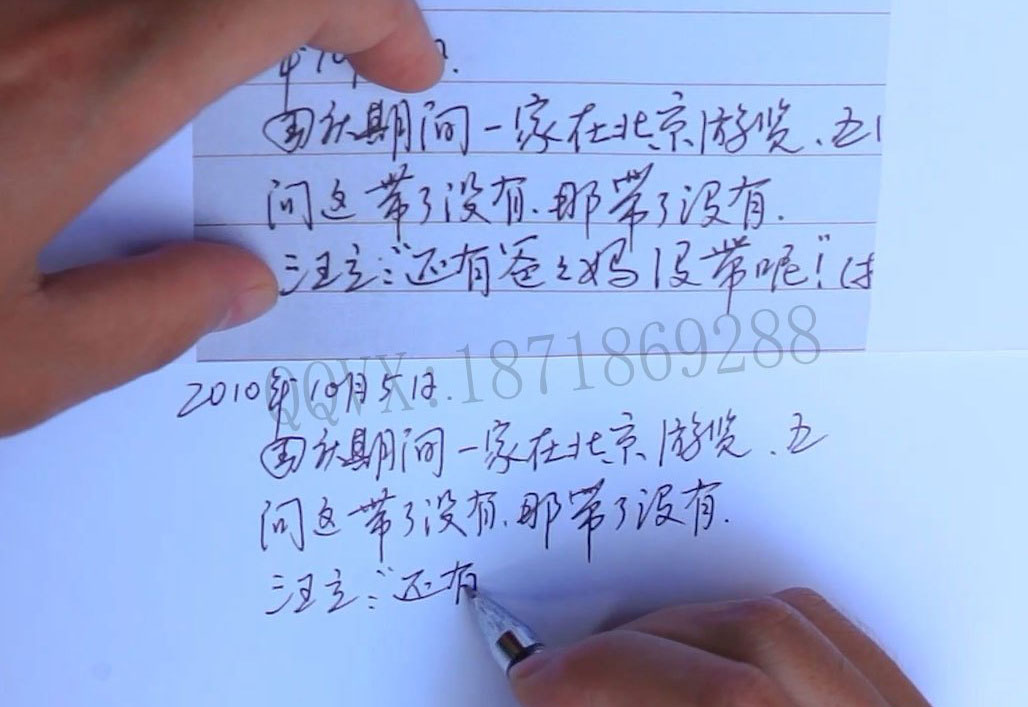 国庆期间一家在北京游览、五
问这带了没有、那带了没有.
汪立:"还有爸々妈没带呢!"
QQVX:1871869288
2010年10月5日
国庆期间一家在北京游览、五
问这带了没有、那带了没有.
汪立:"还有